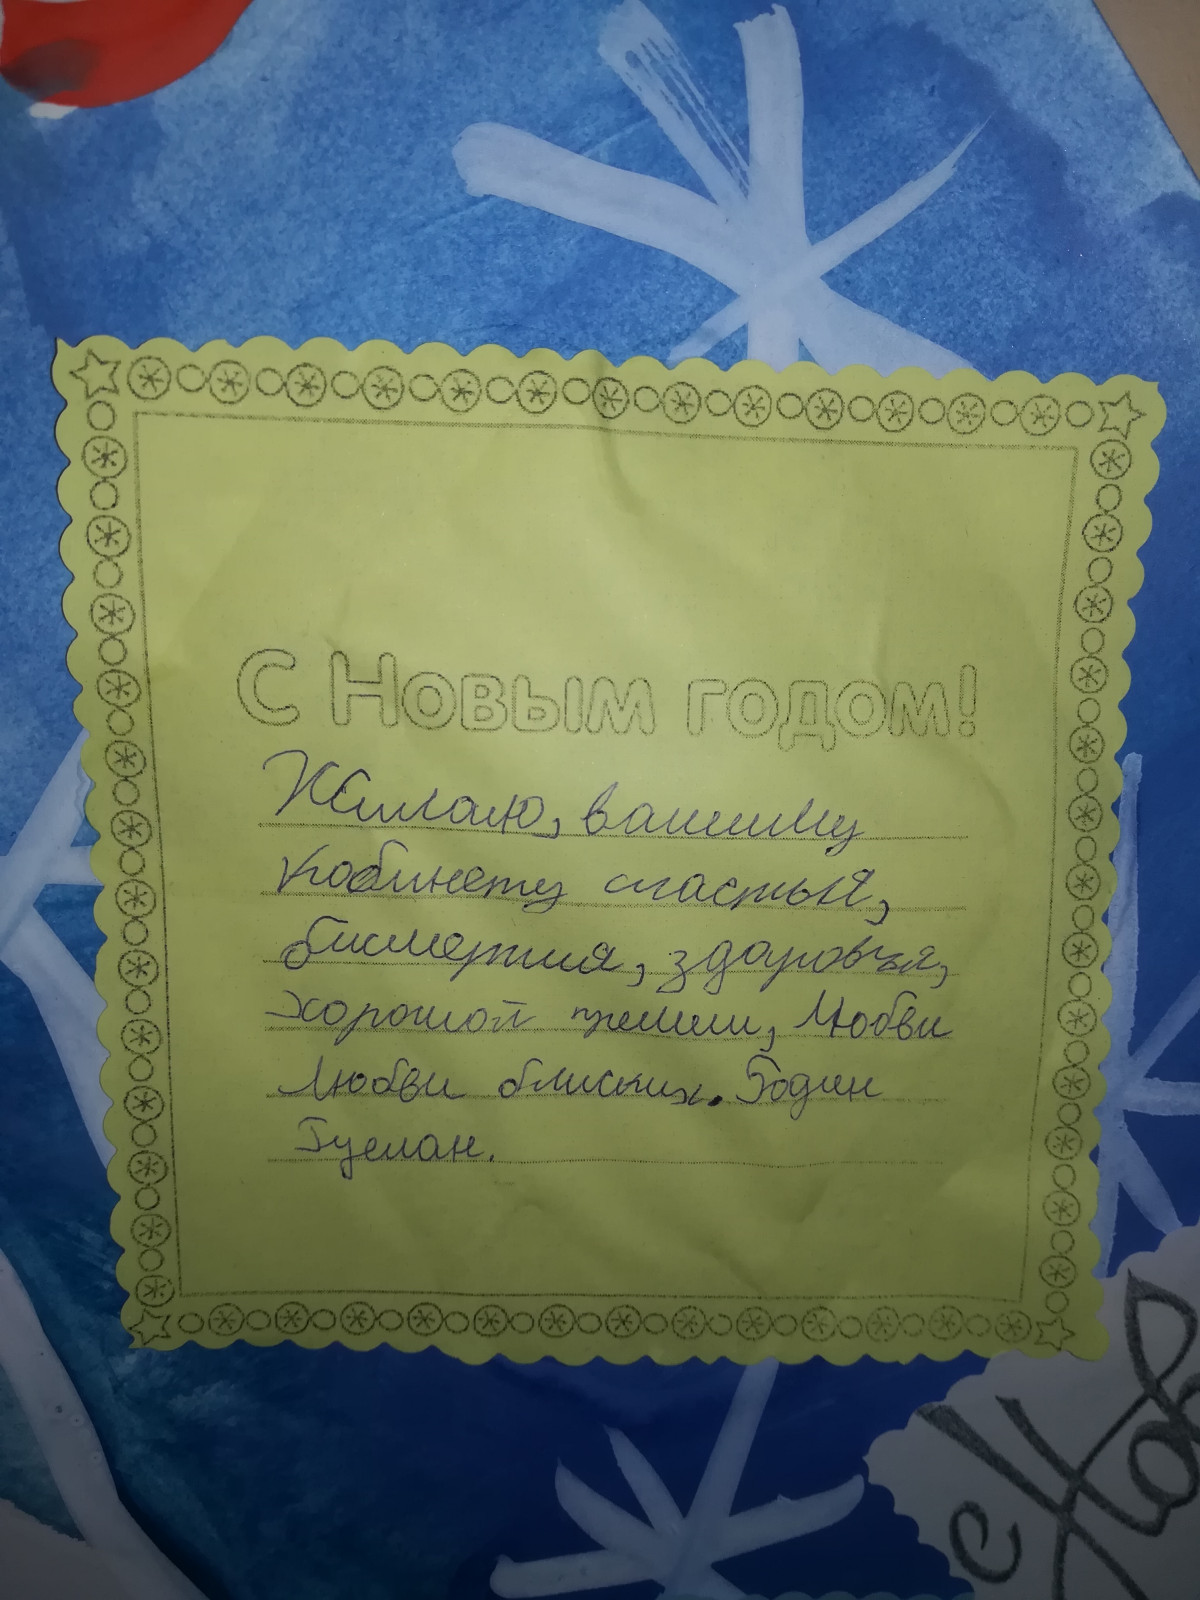 С Новым годом!
Желаю, вашему
кабинету счастья,
бисмертия, здоровья,
хорошой премии, Любви
Любви блиских. Годин
Гуслан.
с Нов